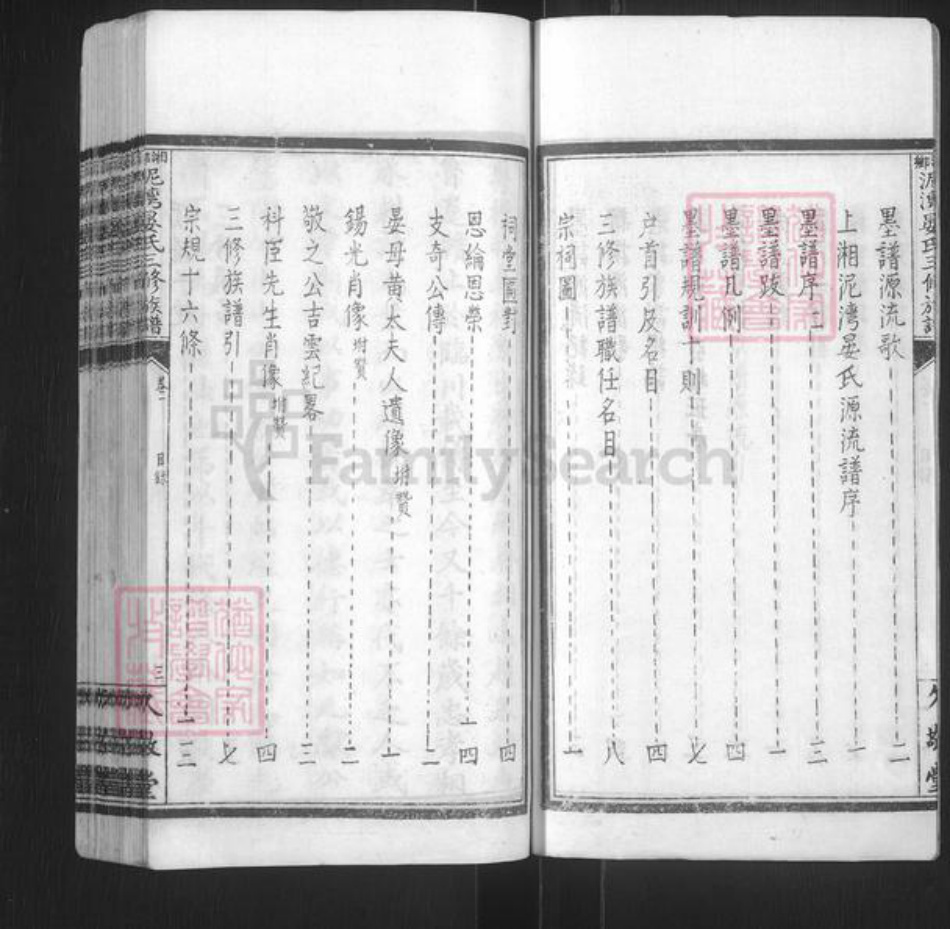 墨譜源流歌 二
上湘泥灣晏氏源流譜序 一
墨譜序二 三
墨譜跋 一
墨譜凡例 四
墨譜規訓十則 七
戶首引及名目 四
三修族譜職任名目 八
宗祠圖 一
祠堂匾對 四
恩綸恩榮 一四
支奇公傳 二
晏母黃太夫人遺像坿贊 一
錫光肖像坿贊 二
敬之公吉雲紀畧 三
科臣先生肖像坿贊 四
三修族譜引 七
宗規十六條 一三
湘鄉泥灣晏氏三修族譜
卷一
目錄
三
久敬堂
FamilySearch